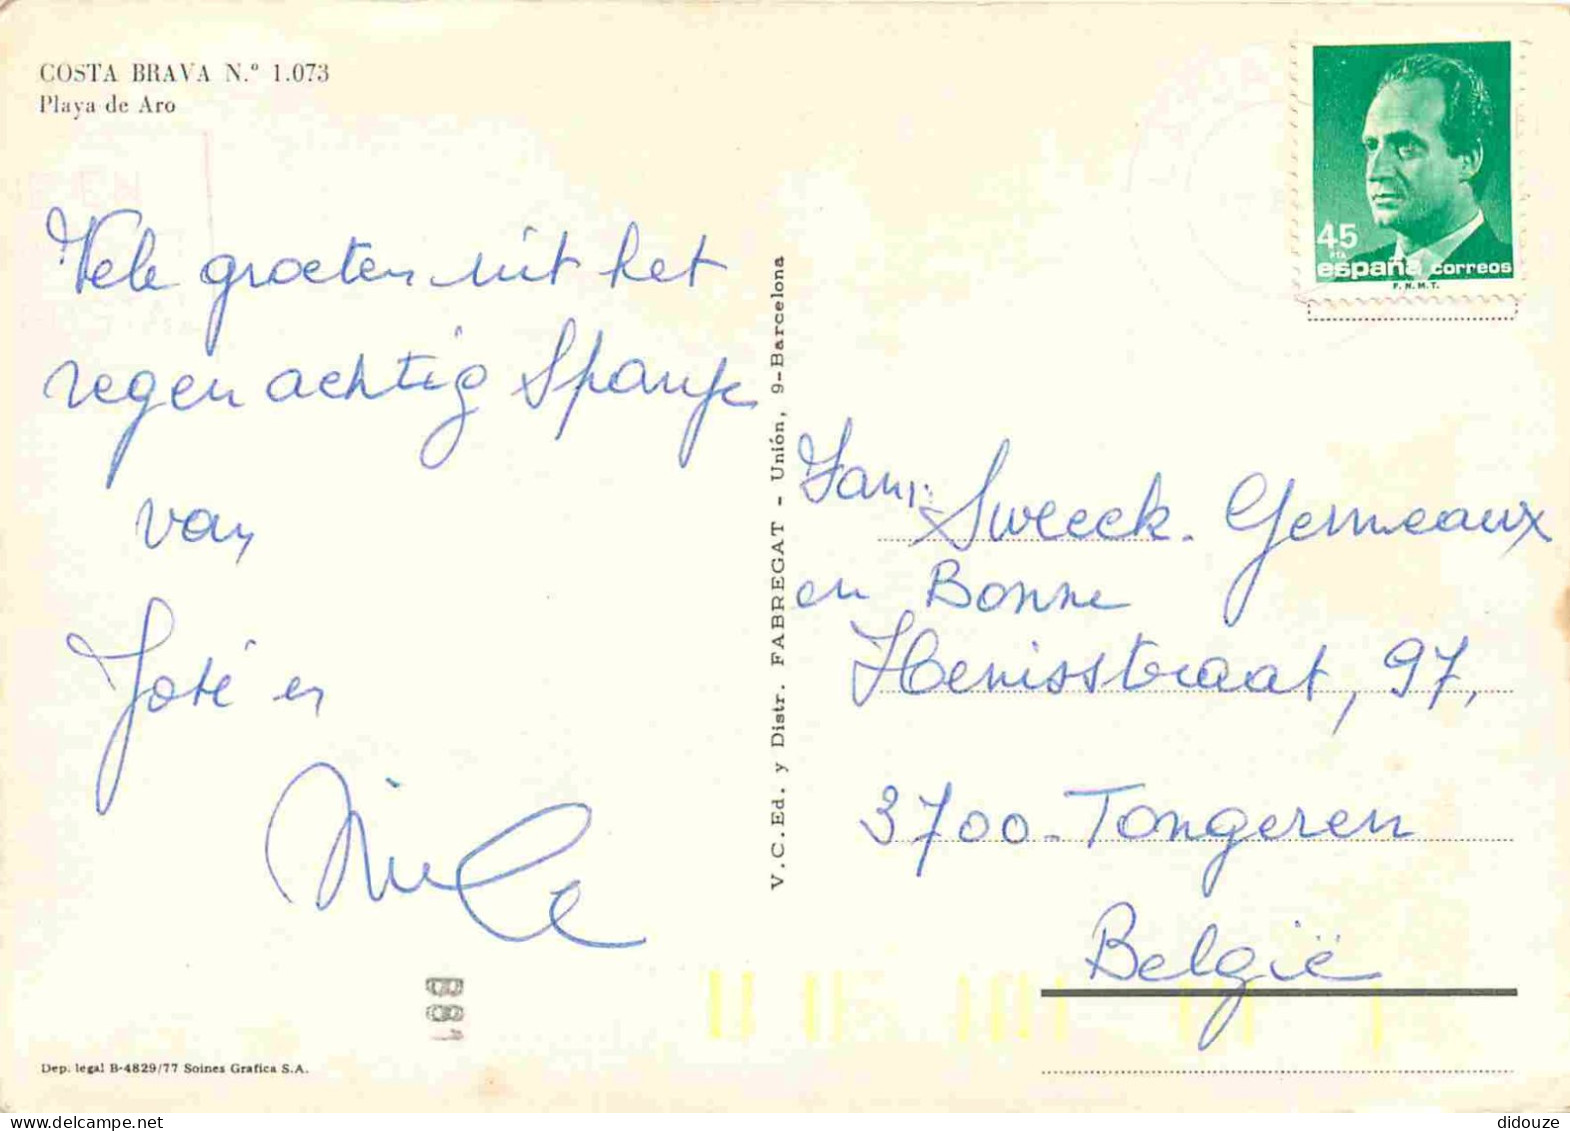 COSTA BRAVA N.º 1.073
Playa de Aro
45
PTA
españa correos
F.N.M.T.
Vele groeten uit het
regenachtig Spanje
van
José en
V.C.Ed. y Distr. FABREGAT - Unión, 9-Barcelona
Fam. Sweeck. Germeaux
en Bonne
Henisstraat, 97,
3700-Tongeren
België
Dep. legal B-4829/77 Soines Grafica S.A.
didouze